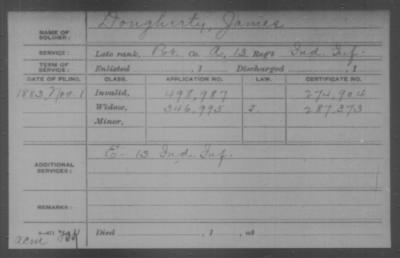 NAME OF SOLDIER: Dougherty, James
SERVICE: Late rank, Pvt. Co. A, 13 Reg't Ind. Inf.
TERM OF SERVICE: Enlisted , 1 Discharged , 1
DATE OF FILING. CLASS. APPLICATION NO. LAW. CERTIFICATE NO.
1883, Nov. 1 Invalid, 498,987 274,904
Widow, 346,995 287,373
Minor,
ADDITIONAL SERVICES: E- 13 Ind. Inf.
REMARKS:
Died , 1 , at